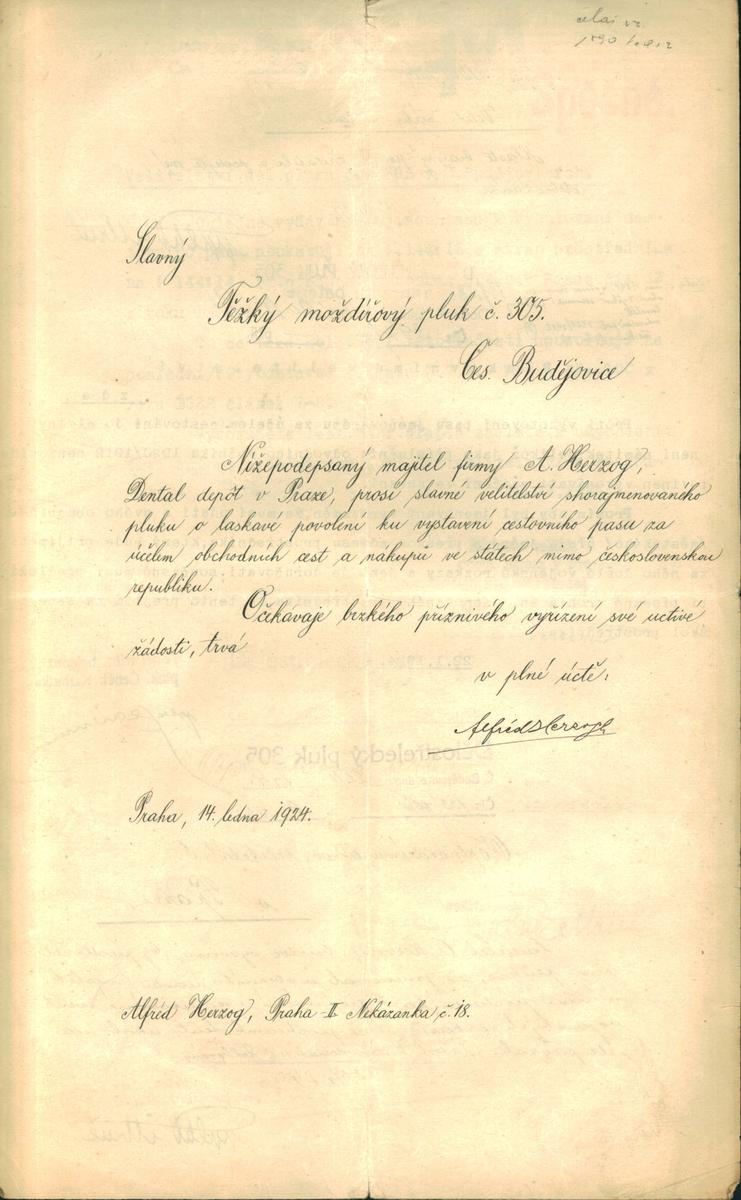 Slavný
Těžký moždířový pluk č. 305.
Čes. Budějovice
Nížepodepsaný majitel firmy A. Herzog,
Dental depôt v Praze, prosí slavné velitelství shorajmenovaného
pluku o laskavé povolení ku vystavení cestovního pasu za
účelem obchodních cest a nákupů ve státech mimo československou
republiku.
Očekávaje brzkého příznivého vyřízení své uctivé
žádosti, trvá
v plné úctě:
Alfréd Herzog
Praha, 14. ledna 1924.
Alfréd Herzog, Praha-II. Nekázanka č. 18.